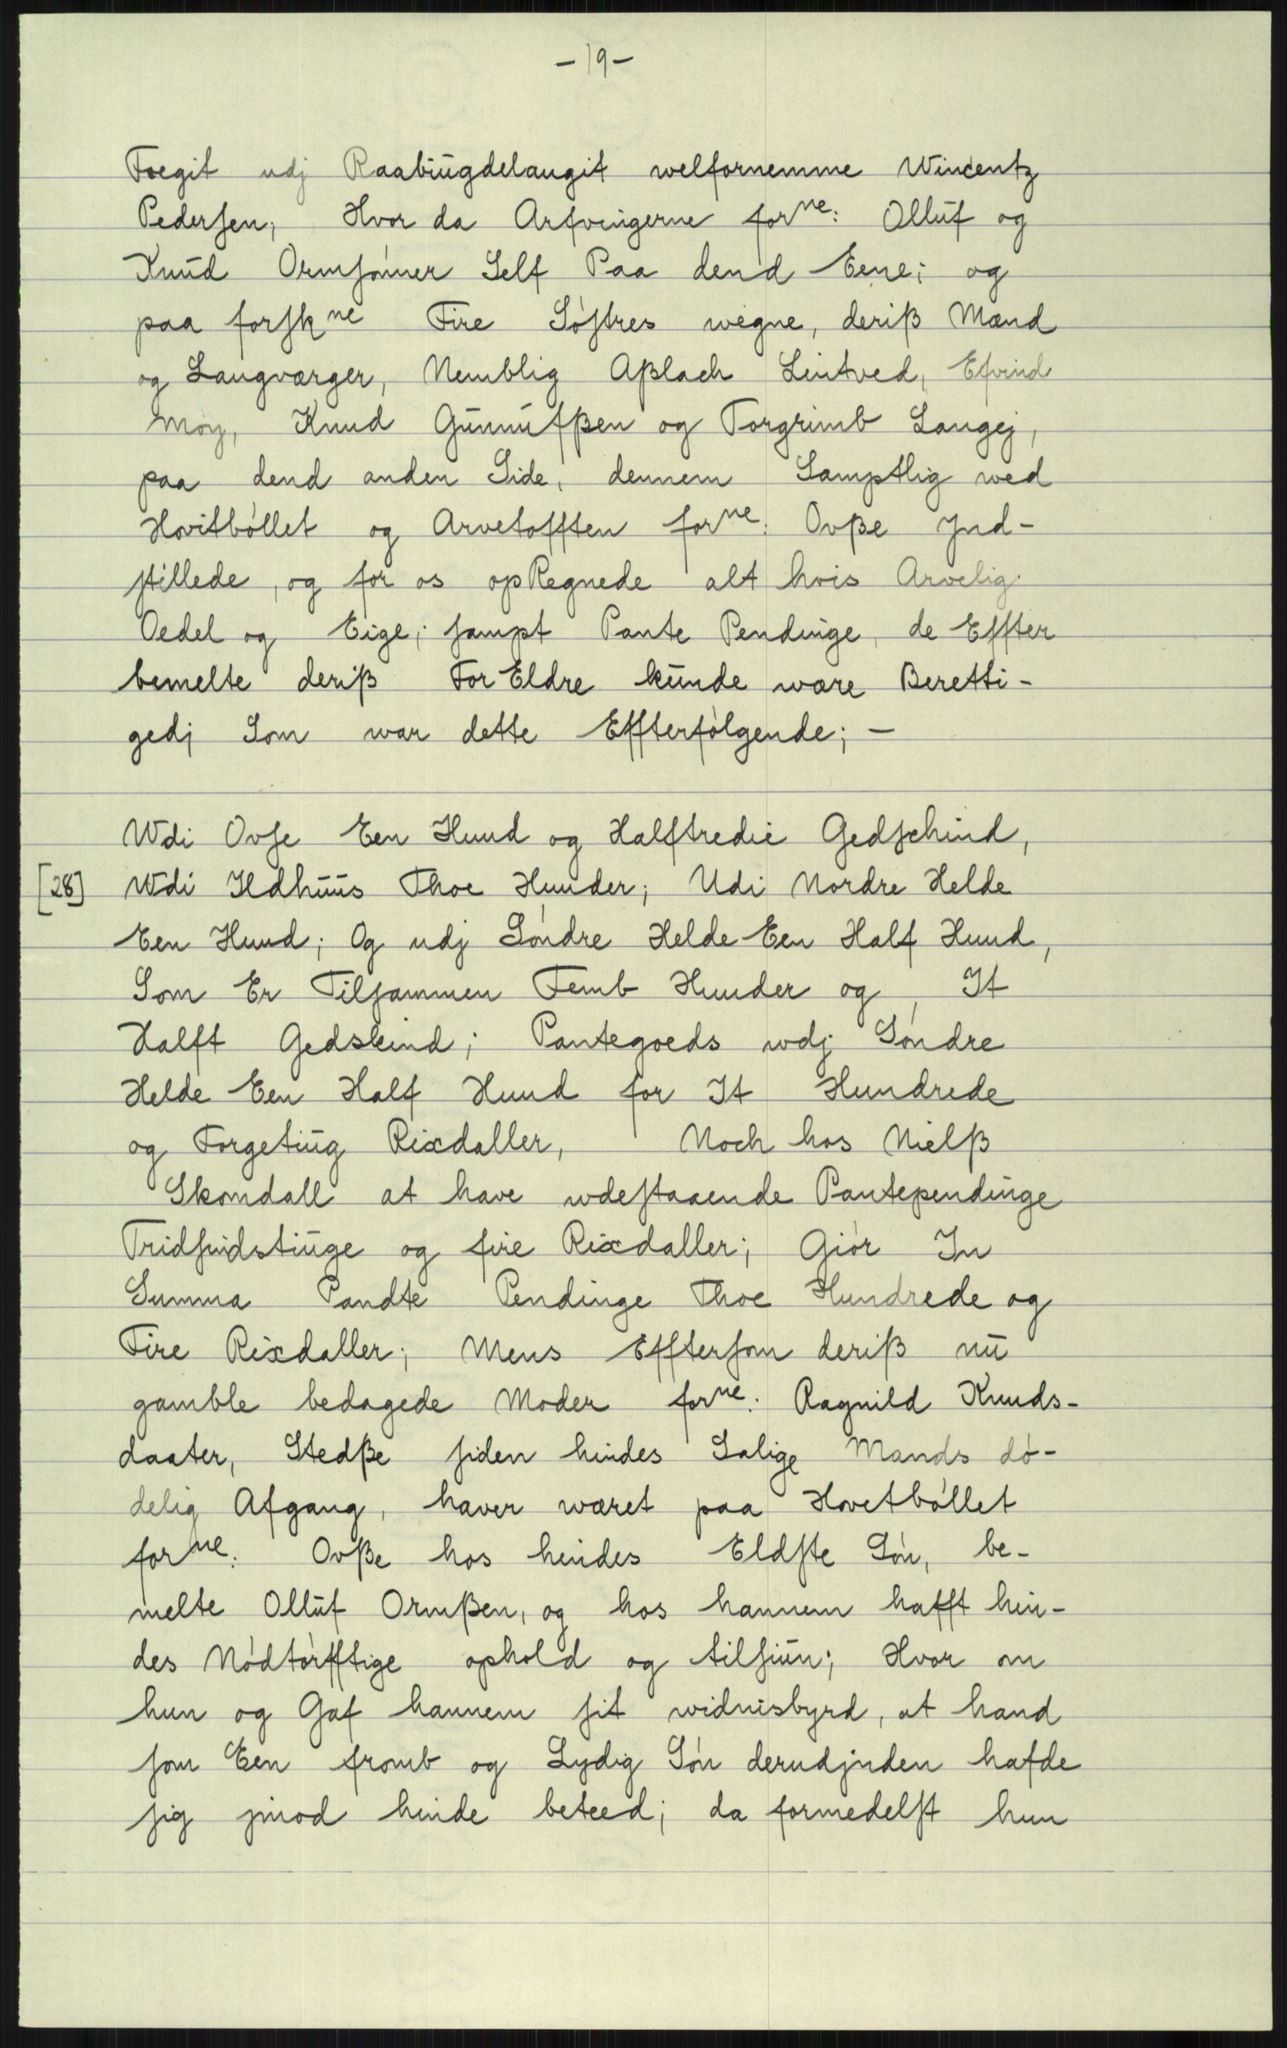 - 19 -
Foegit udj Raabiŭgdelaugit welfornemme Wincentz
Pederſen; Hvor da Arfvingerne forne: Ollŭf og
Knŭd Ormſønner Self Paa dend Eene; og
paa forſkne Fire Søſtres wegne, deriß Mænd
og Laugværger, Nemblig Aßlach Lintved, Efvind
Moy, Knud Gŭnnŭfßen og Torgrimb Langej,
paa dend anden Side, dennem Samptlig ved
Hovitbøllet og Arvetofften forne: Ovße Jnd-
ſtillede, og for os opRegnede alt hvis Arvelig
Oedel og Eige; ſampt Pante Pendinge, de Effter
bemelte deriß ForEldre kŭnde være Beretti-
gedj Som war dette Effterfølgende; -
Wdi Ovſe Een Huud og Halftredie Gedſchind,
[28] Wdi Ildhŭŭs Thoe Huuder; Udi Nordre Helde
Een Huud; Og udj Søndre Helde Een Half Huud,
Som Er Tilſammen Femb Huuder og, It
Halft Gedskind; Pantegoeds wdj Søndre
Helde Een Half Huud for It Hundrede
og Forgetiŭg Rixdaller, Noch hos Nielß
Skomdall at have wdeſtaaende Pantependinge
Tridſindstiŭge og fire Rixdaller; Giør In
Summa Pandte Pendinge Thoe Hundrede og
Fire Rixdaller; Mens Effterſom deriß nŭ
gamble bedagede Moder forne: Ragnild Knuds-
daater, Stedße ſiden hindes Salige Mands dø-
delig Afgang, haver wæret paa Hovetbøllet
forne: Ovße hos hindes Eldſte Søn, be-
melte Ollŭf Ormßen, og hos hannem hafft hin-
des Nødtørfftige ophold og tilſiŭn; Hvor om
hun og Gaf hannem ſit widnisbyrd, at hand
ſom Een fromb og Lydig Søn derudjnden hafde
ſig jmod hinde beteed; da formedelſt hun